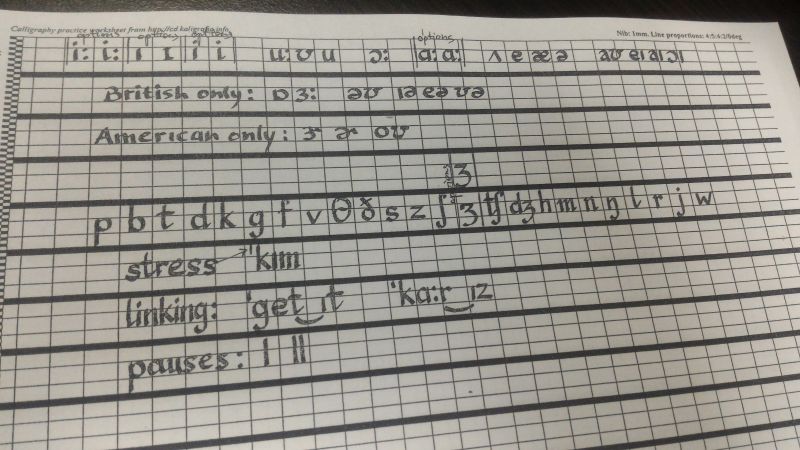 Calligraphy practice worksheet from http://cd.kaligrafia.info Nib: 1mm. Line proportions: 4:5:4:2/0deg
options options options options
i: i: i ɪ i i u: ʊ u ɔ: ɑ: a: ʌ e æ ə aʊ eɪ aɪ ɔɪ
British only: ɒ ɜ: əʊ ɪə eə ʊə
American only: ɝ ɚ oʊ
ʒ
p b t d k g f v θ ð s z ʃ ʒ ʧ dʒ h m n ŋ l r j w
stress → ˈkɪm
linking: ˈget‿ɪt ˈkɑ:r‿ɪz
pauses: | ||